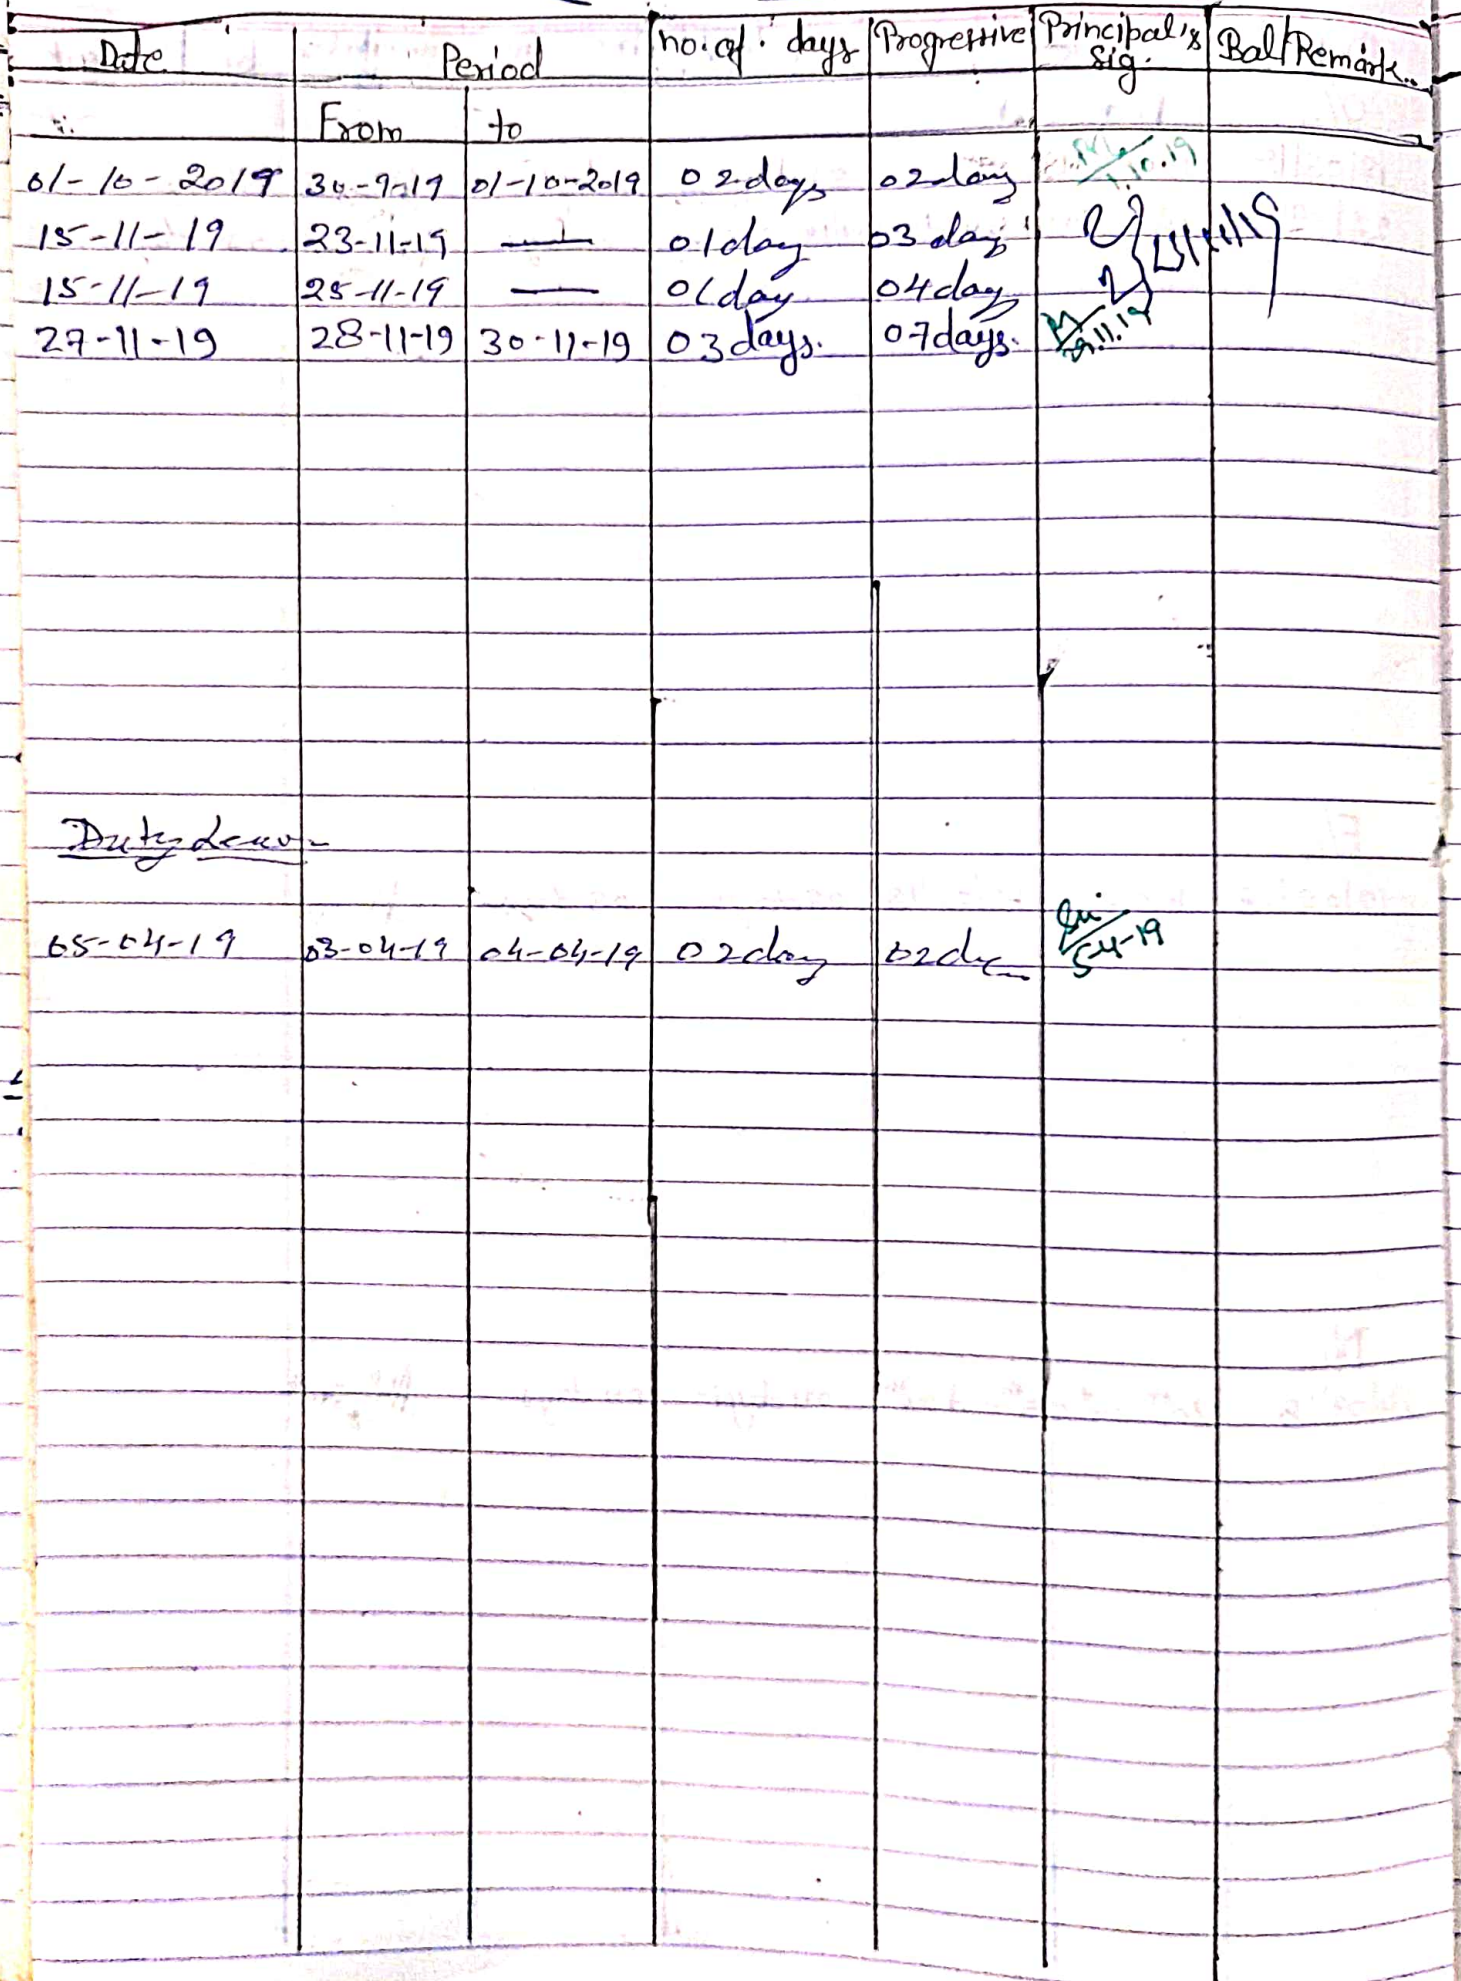 Date Period no. of. days Progressive Principal's Sig. Bal/Remark..
From to
01-10-2019 30-9-19 01-10-2019 02 days 02 days 1.10.19
15-11-19 23-11-19 — 01 day 03 days
15-11-19 25-11-19 — 01 day 04 days
27-11-19 28-11-19 30-11-19 03 days. 07 days. 29.11.19
Duty Leave
05-04-19 03-04-19 04-04-19 02 days 02 days 5-4-19